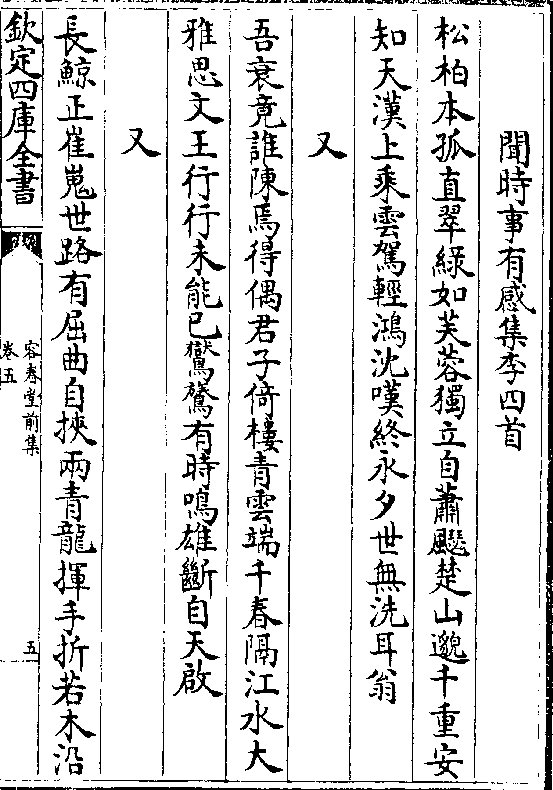 聞時事有感集李四首
松柏本孤直翠綠如芙蓉獨立自蕭飋楚山邈千重安
知天漢上乘雲駕輕鴻沈嘆終永夕世無洗耳翁
又
吾衰竟誰陳焉得偶君子倚樓青雲端千春隔江水大
雅思文王行行未能已鸑鷟有時鳴雄斷自天啟
又
長鯨正崔嵬世路有屈曲自挾兩青龍揮手折若木沿
欽定四庫全書
容春堂前集
卷五
五